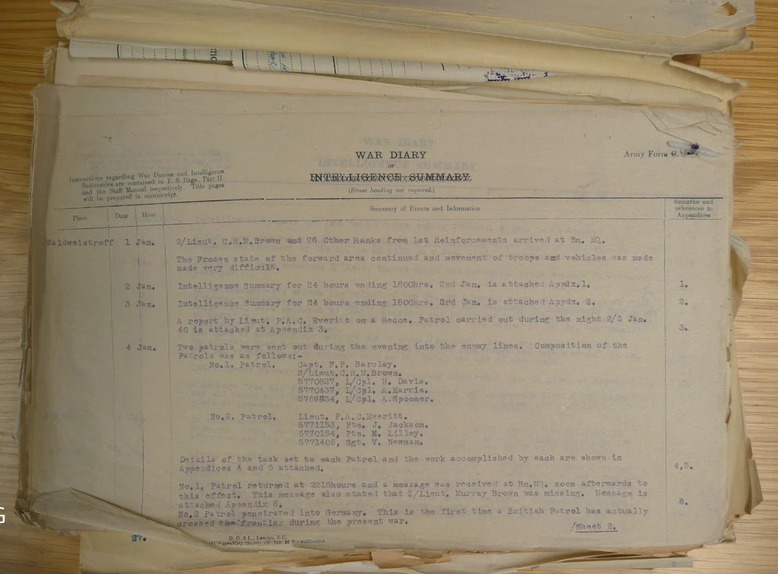 WAR DIARY
or
INTELLIGENCE SUMMARY.
(Erase heading not required.)
Army Form C.
Instructions regarding War Diaries and Intelligence
Summaries are contained in F. S. Regs., Part II.
and the Staff Manual respectively. Title pages
will be prepared in manuscript.
Place
Date
Hour
Summary of Events and Information
Remarks and
references to
Appendices
Waldweistroff 1 Jan. 2/Lieut. C.R.M.Brown and 26 Other Ranks from 1st Reinforcements arrived at Bn. HQ.
The Frozen state of the forward area continued and movement of troops and vehicles was made
made very difficult.
2 Jan. Intelligence Summary for 24 hours ending 1800hrs. 2nd Jan. is attached Appdx.1. 1.
3 Jan. Intelligence Summary for 24 hours ending 1800hrs. 3rd Jan. is attached Appdx. 2. 2.
A report by Lieut. P.A.C. Everitt on a Recce. Patrol carried out during the night 2/3 Jan.
40 is attached at Appendix 3. 3.
4 Jan. Two patrols were sent out during the evening into the enemy lines. Composition of the
Patrols was as follows:-
No.1. Patrol. Capt. F.P. Barclay.
2/Lieut.C.R.M.Brown.
5770827, L/Cpl. H. Davis.
5770437, L/Cpl. A.Harris.
L/Cpl. A.Spooner.
No.2. Patrol. Lieut. P.A.C.Everitt.
5771153, Pte. J. Jackson.
5770184, Pte. E. Lilley.
5771408, Sgt. V. Newman.
Details of the task set to each Patrol and the work accomplished by each are shown in
Appendices 4 and 5 attached. 4,5.
No.1, Patrol returned at 2215hours and a message was received at Bn.HQ. soon afterwards to
this effect. This message also stated that 2/Lieut. Murray Brown was missing. Message is
attached Appendix 6. 6.
No.2 Patrol penetrated into Germany. This is the first time a British Patrol has actually
crossed the frontier during the present war.
/Sheet 2.
D. D. & L., London, E.C.